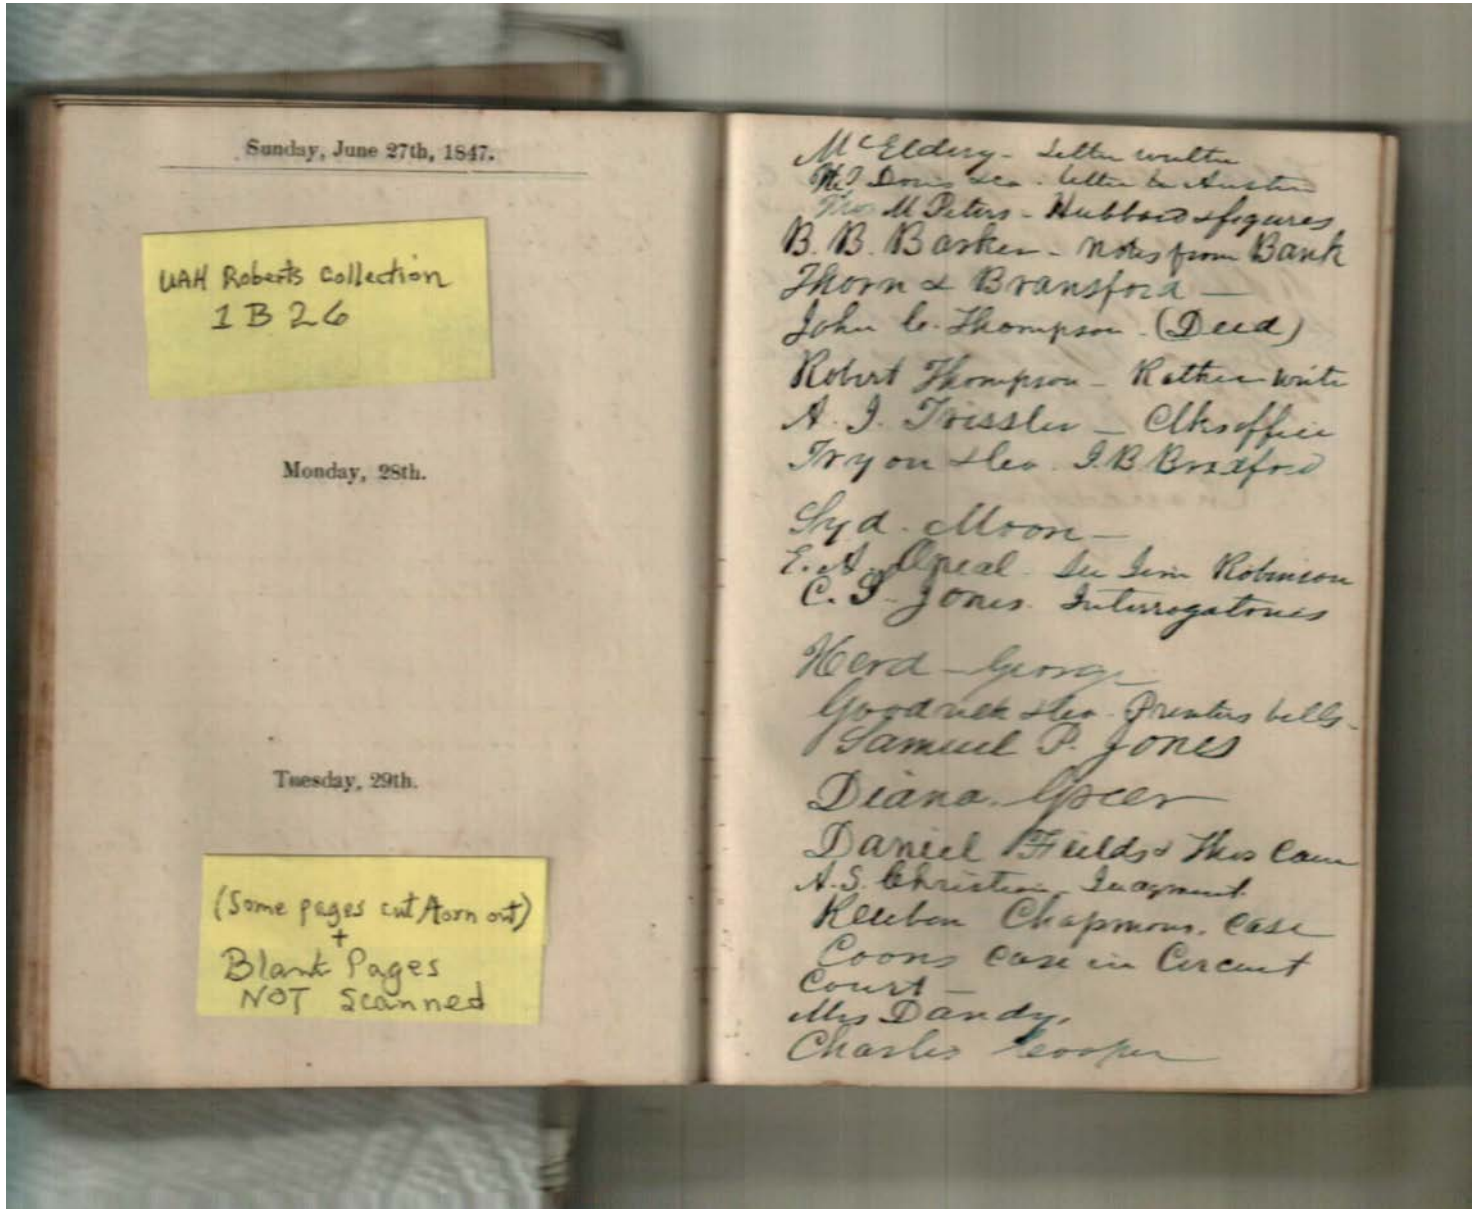 Sunday, June 27th, 1847.
UAH Roberts Collection
1B26
Monday, 28th.
Tuesday, 29th.
(Some pages cut/torn out)
+
Blank Pages
NOT Scanned
McEldery - Letter
Letter to Austin
Thos M Peters - Hubbard & figures
B. B. Barker - Notes from Bank
Thorn & Bransford -
John C. Thompson - (Deed)
Robert Thompson - Rather write
A. J. Trissler - Clks office
Tryon & Co. J. B. Bradford
Syd. Moon -
E. A. Oneal - See Robinson
C. S. Jones. Interrogatories
Herd - George
&Co. Printers bills -
Samuel P. Jones
Diana Greer
Daniel Fields &
A. S. Christian, Judgment.
Reuben Chapmans. Case
Coons Case in Circuit
Court -
Mrs Dandy.
Charles Cooper